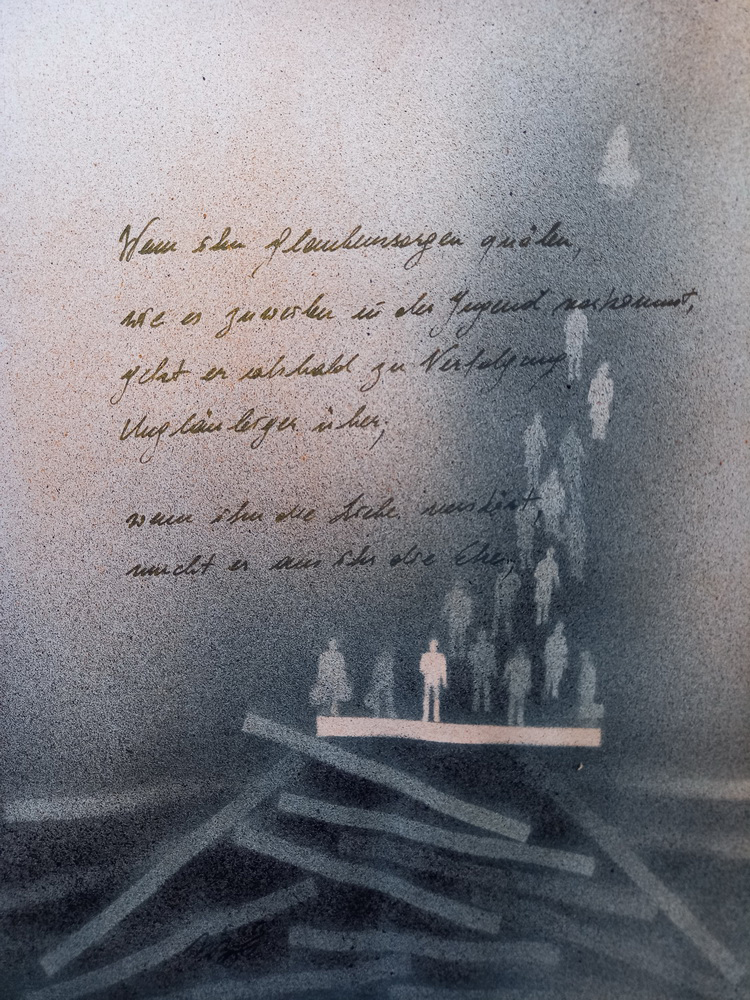 Wenn ihn Glaubenssorgen quälen,
wie es zuweilen in der Jugend vorkommt,
geht er alsbald zu Verfolgung
Ungläubiger über;
wenn ihn die Liebe verstört,
macht er aus ihr die Ehe